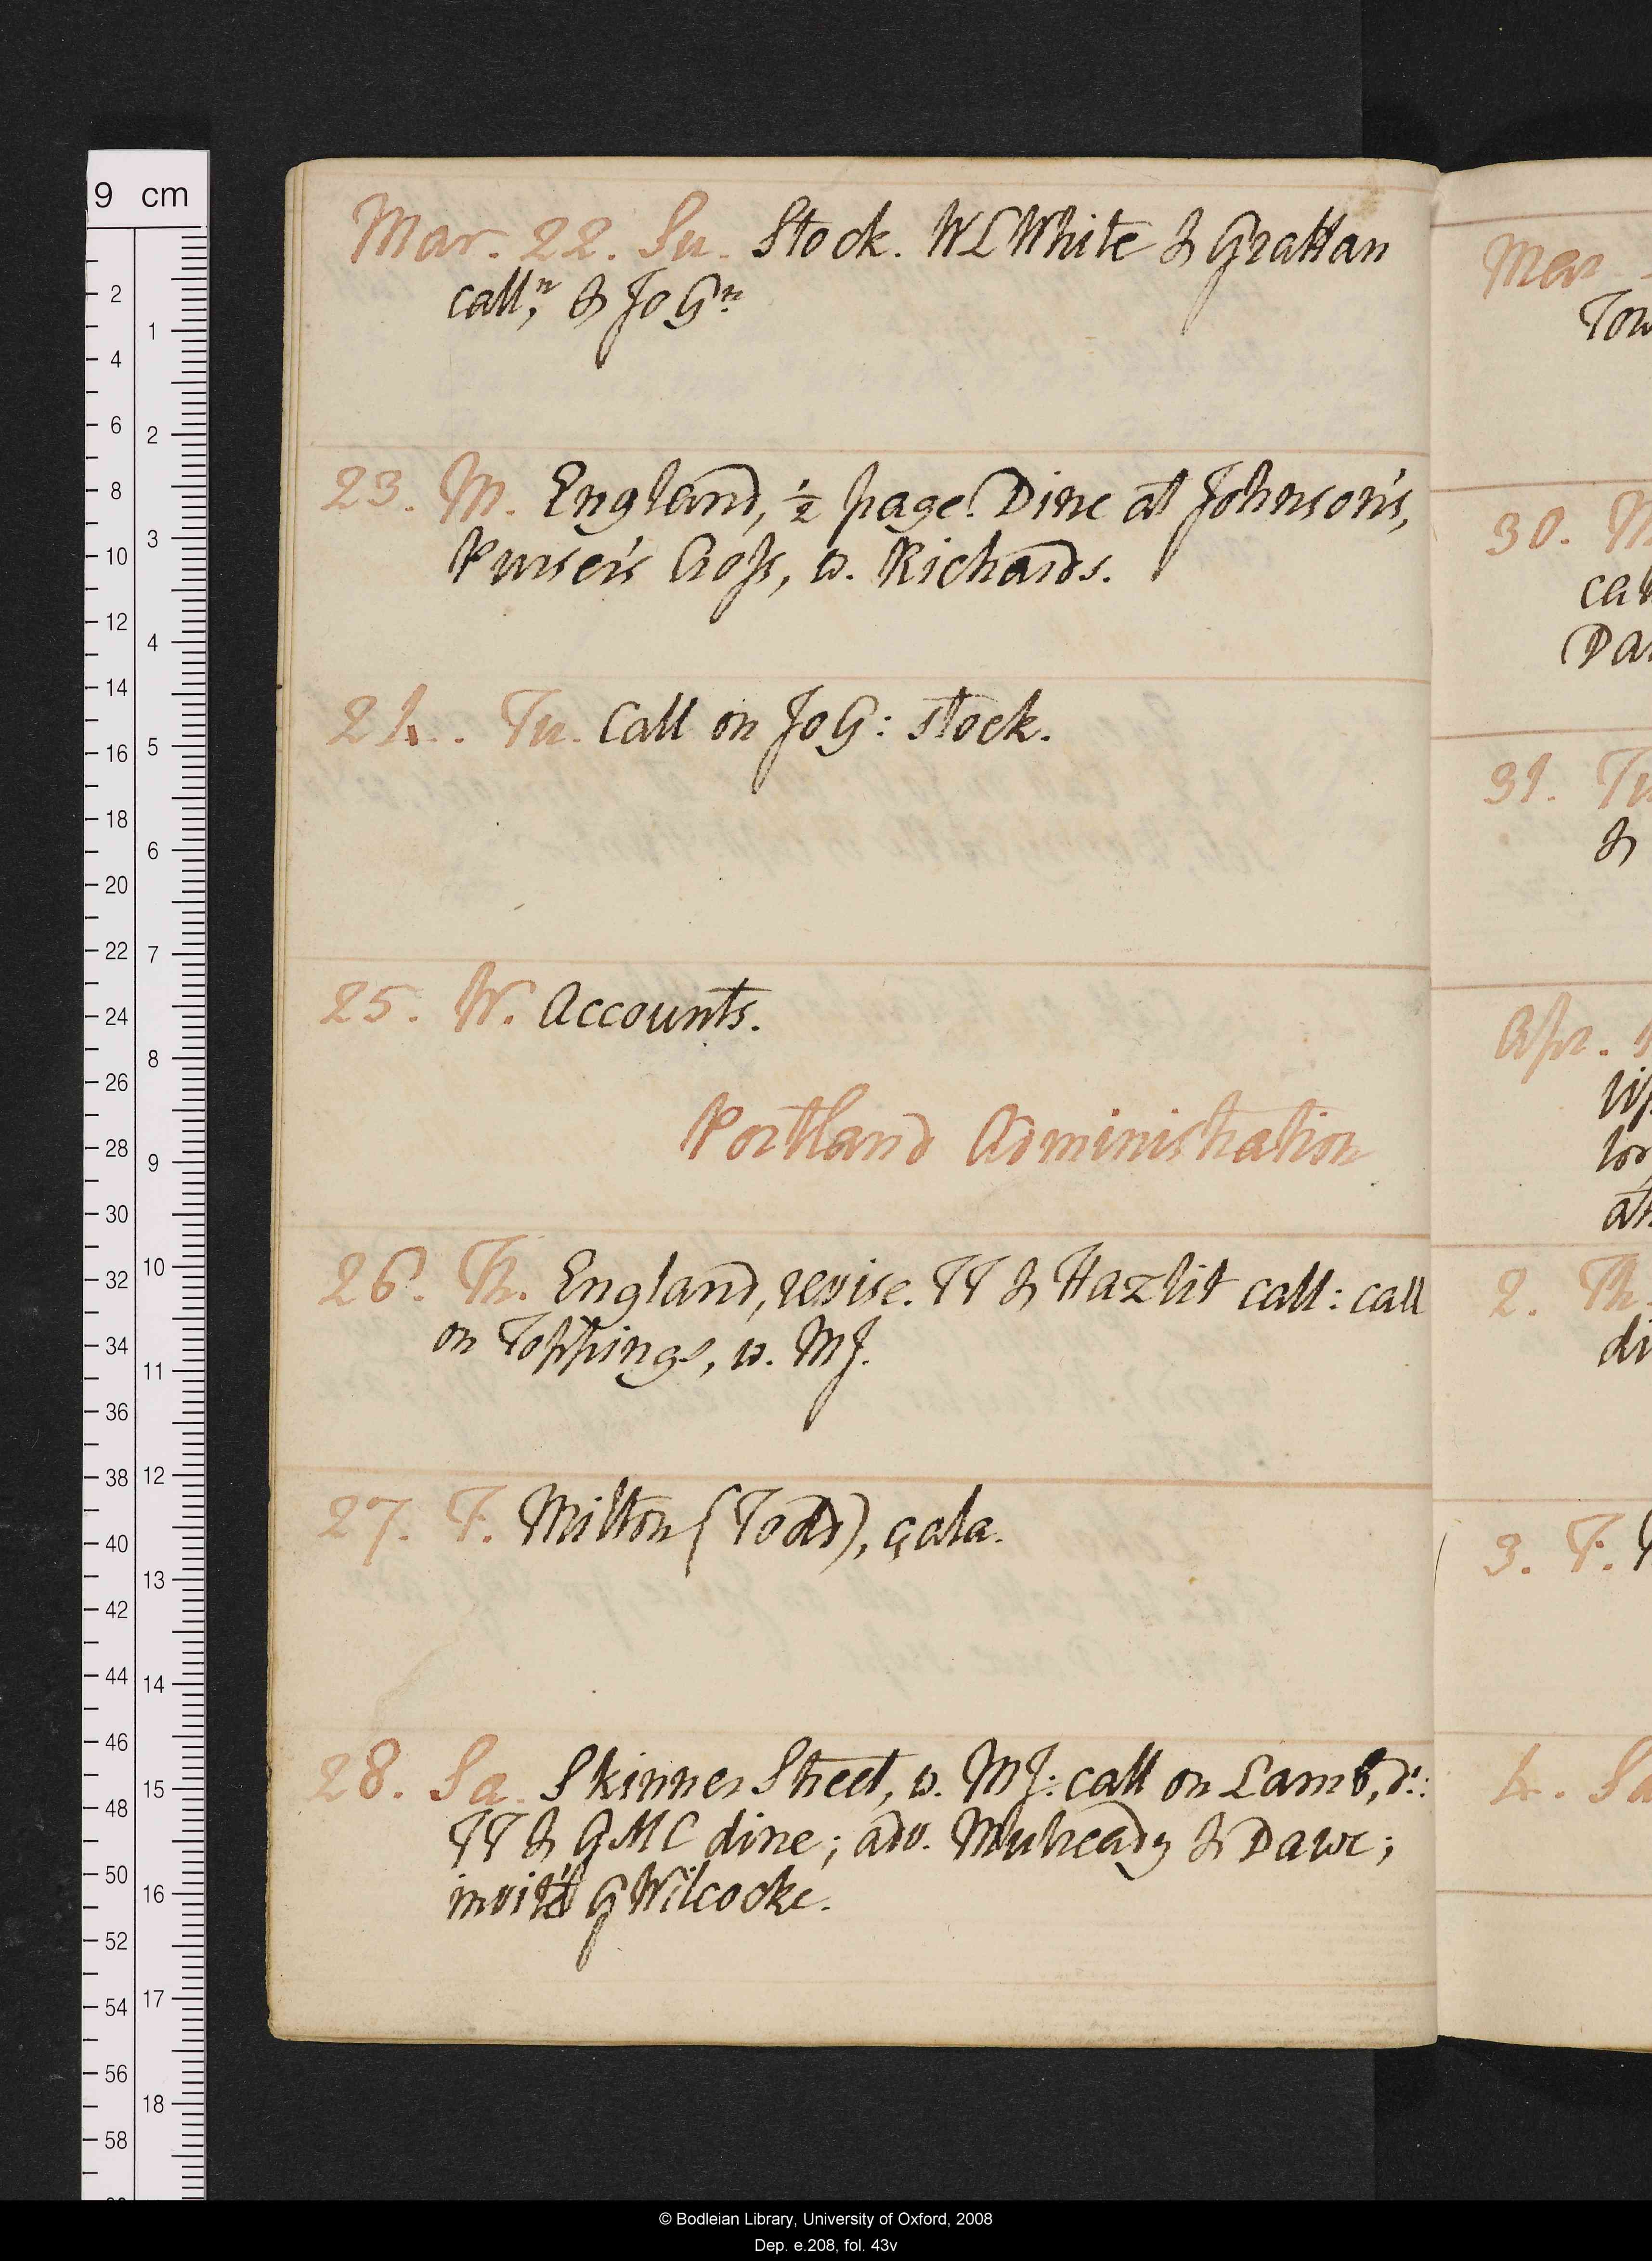 Mar. 22. Su. Stock. WL White & Grattan
call,n & Jo Gn.
23. M. England, ½ page. Dine at Johnson's,
Purser's Cross, w. Richards.
24. Tu. Call on Jo G: stock.
25. W. Accounts.
Portland Administration
26. Th. England, revise. TT & Hazlit call: call
on Toppings, w. MJ.
27. F. Milton (Todd), çala.
28. Sa. Skinner Street, w. MJ: call on Lamb, do.:
TT & GMC dine; adv. Mulready & Dawe;
invitd G Wilcocke.
Mar
Tow
30. M
call
Dav
31. Tu
&
Apr. 1
2. Th.
di
3. F.
4. Sa
9 cm
2
4
6
8
10
12
14
16
18
20
22
24
26
28
30
32
34
36
38
40
42
44
46
48
50
52
54
56
58
1
2
3
4
5
6
7
8
9
10
11
12
13
14
15
16
17
18
© Bodleian Library, University of Oxford, 2008
Dep. e.208, fol. 43v